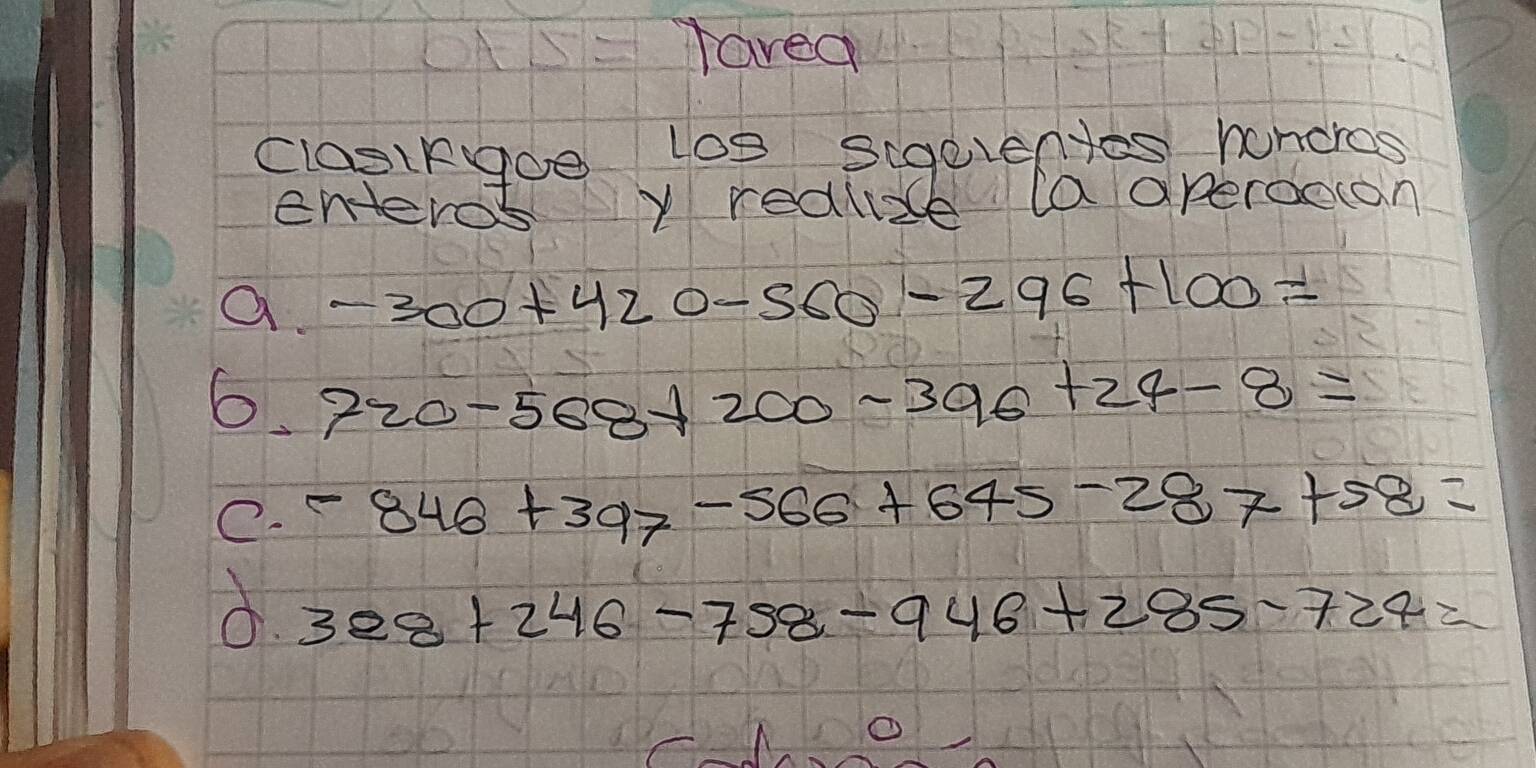 Tarea
Clasifique Los sigeientes numeros
enteros y realize la operacion
a. -300+420-560-296+100=
b. 720-568+200-396+24-8=
c. -846+397-566+645-287+58=
d. 388+246-758-946+285-724=